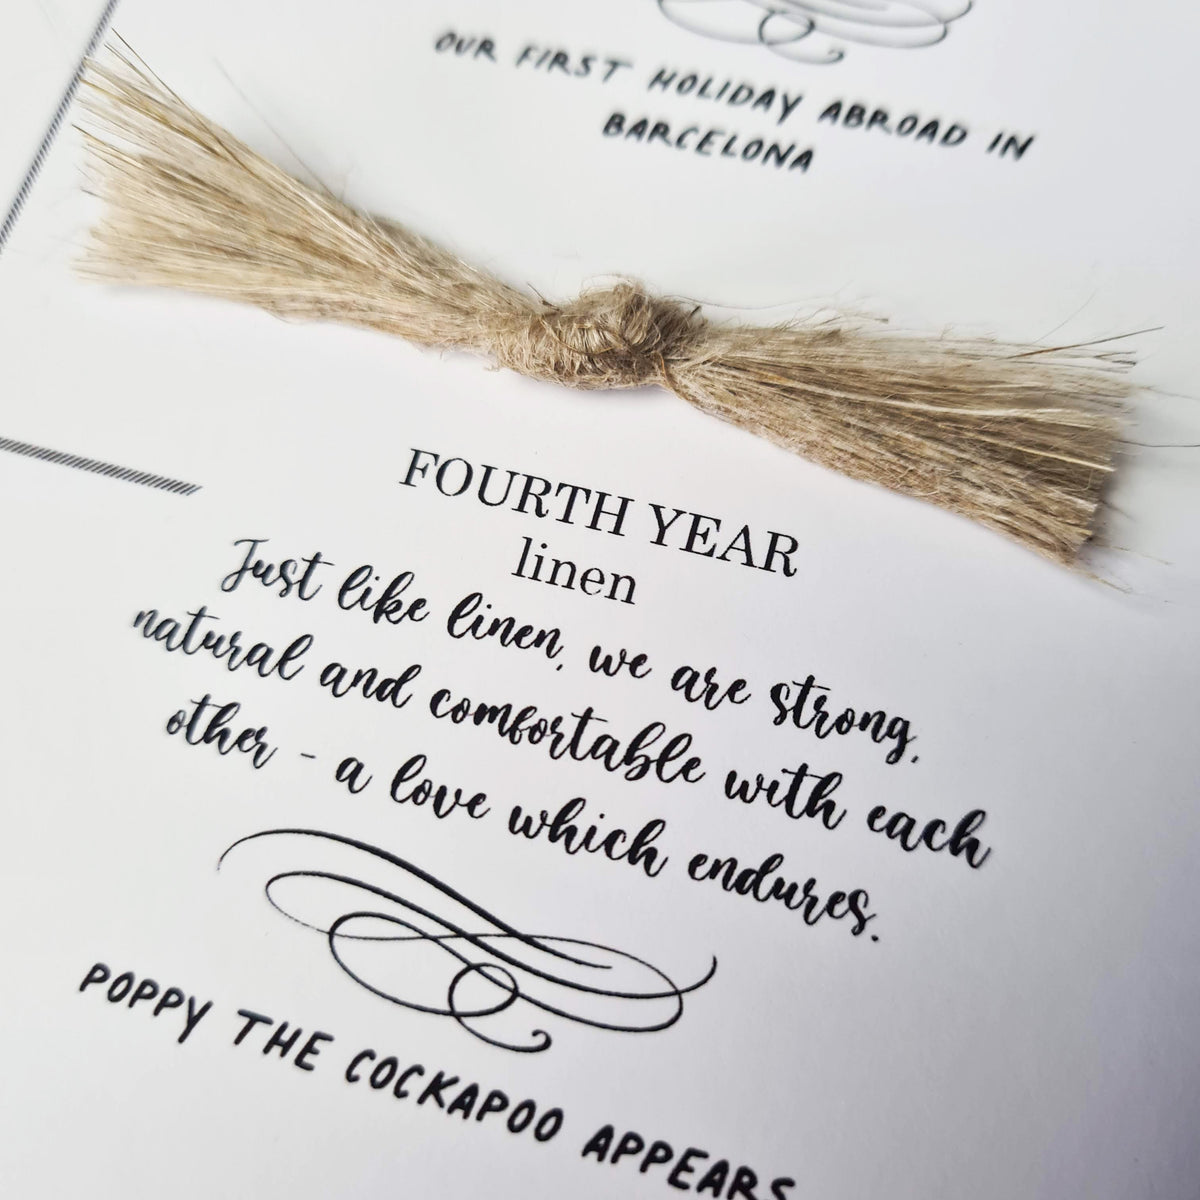 OUR FIRST HOLIDAY ABROAD IN
BARCELONA
FOURTH YEAR
linen
Just like linen, we are strong,
natural and comfortable with each
other - a love which endures.
POPPY THE COCKAPOO APPEARS